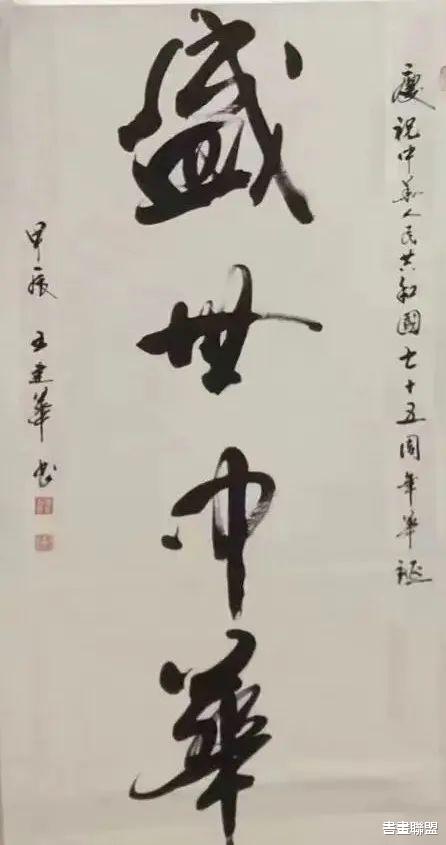 慶祝中華人民共和國七十五周年華誕
盛世中華
甲辰 王建華書
書畫聯盟